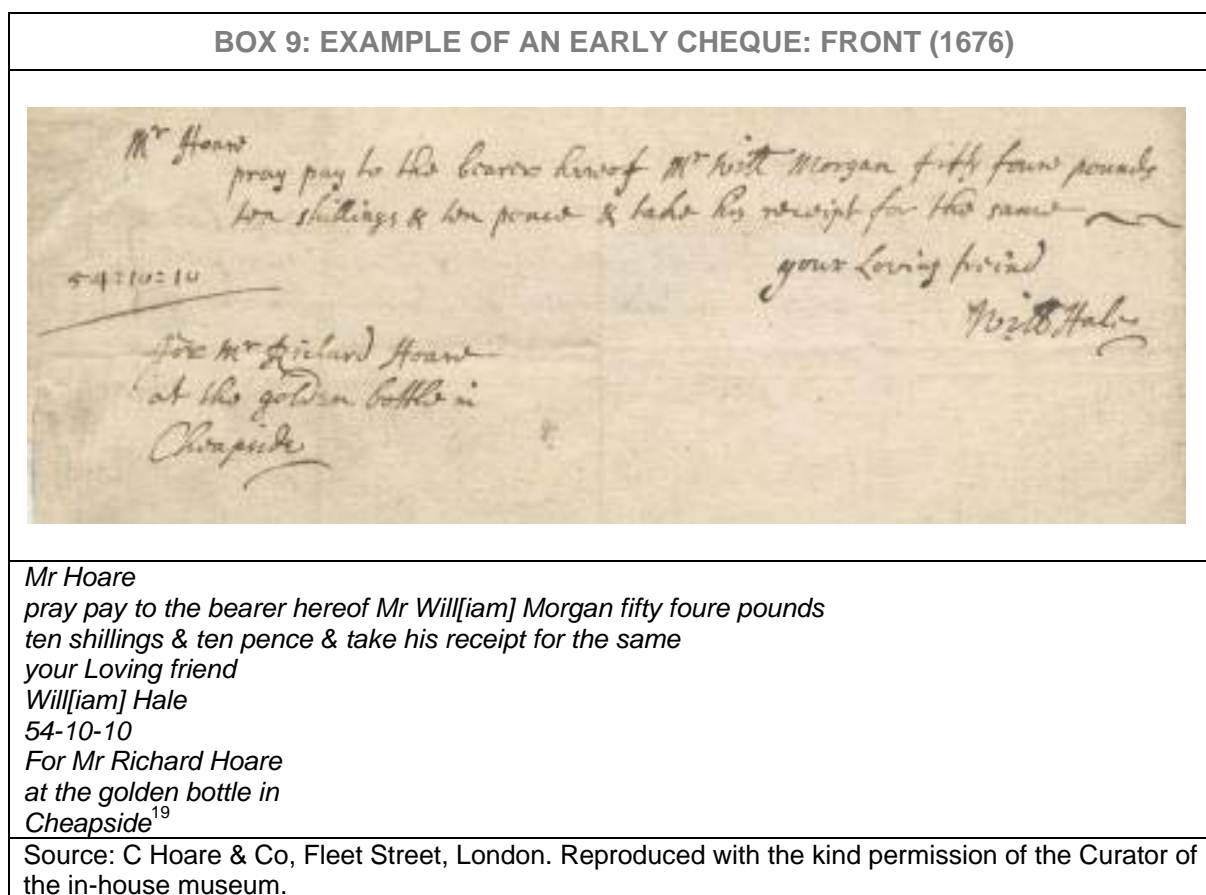 BOX 9: EXAMPLE OF AN EARLY CHEQUE: FRONT (1676)
Mr Hoare
pray pay to the bearer hereof Mr Will Morgan fifty foure pounds
ten shillings & ten pence & take his receipt for the same
your Loving freind
Will Hale
54=10=10
For Mr Richard Hoare
at the golden bottle in
Cheapside
Mr Hoare
pray pay to the bearer hereof Mr Will[iam] Morgan fifty foure pounds
ten shillings & ten pence & take his receipt for the same
your Loving friend
Will[iam] Hale
54-10-10
For Mr Richard Hoare
at the golden bottle in
Cheapside19
Source: C Hoare & Co, Fleet Street, London. Reproduced with the kind permission of the Curator of
the in-house museum.